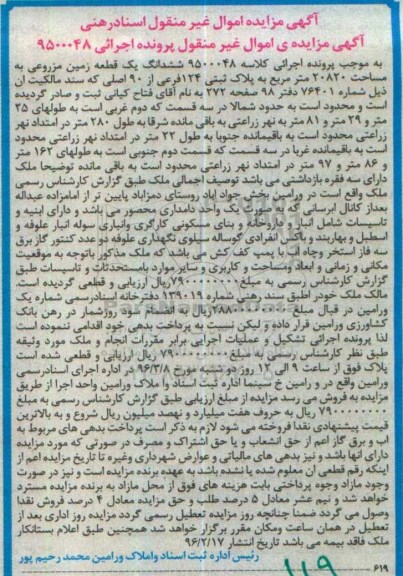 آگهی مزایده اموال غیر منقول اسنادرهنی
آگهی مزایده ی اموال غیر منقول پرونده اجرائی ۹۵۰۰۰۴۸
به موجب پرونده اجرائی کلاسه ۹۵۰۰۰۴۸ ششدانگ یک قطعه زمین مزروعی به
مساحت ۲۰۸۲۰ متر مربع به پلاک ثبتی ۱۲۴فرعی از ۹۰ اصلی که سند مالکیت آن
ذیل شماره ۷۶۴۰۱ دفتر ۹۸ صفحه ۲۷۲ به نام آقای فتاح کیانی ثبت و صادر گردیده
است و محدود است به حدود شمالا در سه قسمت که دوم غربی است به طولهای ۲۵
متر و ۲۹ متر و ۸۱ متر به نهر زراعتی به باقی مانده شرقا به طول ۲۸۰ متر در امتداد نهر
زراعتی محدود است به باقیمانده جنوبا به طول ۲۲ متر در امتداد نهر زراعتی محدود
است به باقیمانده غربا در سه قسمت که قسمت دوم جنوبی است به طولهای ۱۶۲ متر
و ۸۶ متر و ۹۷ متر در امتداد نهر زراعتی محدود است به باقی مانده توضیحا ملک
دارای سه فقره بازداشتی می باشد توصیف اجمالی ملک طبق گزارش کارشناس رسمی
ملک واقع است در ورامین بخش جواد آباد روستای دمزآباد پایین تر از امامزاده عبداله
بعداز کانال آبرسانی که بصورت یک واحد دامداری محصور می باشد و دارای ابنیه و
تاسیسات شامل انبار ، داروخانه و بنای مسکونی کارگری وانباری سوله انبار علوفه و
اسطبل و بهاربند و باکس انفرادی گوساله سیلوی نگهداری علوفه دو عدد کنتور گاز برق
سه فاز استخر وچاه آب با پمپ کف کش می باشد که ملک مذکور باتوجه به موقعیت
مکانی و زمانی و ابعاد ومساحت و کاربری و سایر موارد بامستحدثات و تاسیسات طبق
گزارش کارشناس رسمی به مبلغ ۷۹۰۰۰۰۰۰۰۰ریال ارزیابی و قطعی گردیده است.
مالک ملک خودرا طبق سند رهنی شماره ۱۳۹۰۱۹ دفترخانه اسنادرسمی شماره یک
ورامین در قبال مبلغ ریال به انضمام سود روزشمار در رهن بانک
کشاورزی ورامین قرار داده و لیکن نسبت به پرداخت بدهی خود اقدامی ننموده است
لذا پرونده اجرائی تشکیل و عملیات اجرایی برابر مقررات انجام و ملک مورد وثیقه
طبق نظر کارشناس رسمی به مبلغ ۷۹۰۰۰۰۰۰۰۰ ریال ارزیابی و قطعی شده است
پلاک فوق از ساعت ۹ الی ۱۲ روز دو شنبه مورخ ۹۶/۳/۸ در اداره اجرای اسنادرسمی
ورامین واقع در و رامین خ سینما اداره ثبت اسناد وا ملاک ورامین واحد اجرا از طریق
مزایده به فروش می رسد مزایده از مبلغ ارزیابی طبق گزارش کارشناس رسمی به مبلغ
۷۹۰۰۰۰۰۰۰۰ ریال به حروف هفت میلیارد و نهصد میلیون ریال شروع و به بالاترین
قیمت پیشنهادی نقدا فروخته می شود لازم به ذکر است پرداخت بدهی های مربوط به
آب و برق گاز اعم از حق انشعاب و یا حق اشتراک و مصرف در صورتی که مورد مزایده
دارای آنها باشد و نیز بدهی های مالیاتی و عوارض شهرداری وغیره تا تاریخ مزایده اعم از
اینکه رقم قطعی آن معلوم شده یا نشده باشد به عهده برنده مزایده است و نیز در صورت
وجود مازاد وجوه پرداختی بابت هزینه های فوق از محل مازاد به برنده مزایده مسترد
خواهد شد و نیم عشر معادل ۵ درصد طلب و حق مزایده معادل ۴ درصد فروش نقدا
وصول می گردد ضمنا چنانچه روز مزایده تعطیل رسمی گردد مزایده روز اداری بعد از
تعطیل در همان ساعت ومکان مقرر برگزار خواهد شد همچنین طبق اعلام بستانکار
ملک فاقد بیمه می باشد تاریخ انتشار ۹۶/۲/۱۷
رئیس اداره ثبت اسناد واملاک ورامین محمد رحیم پور
۶۱۹
۱۱۹